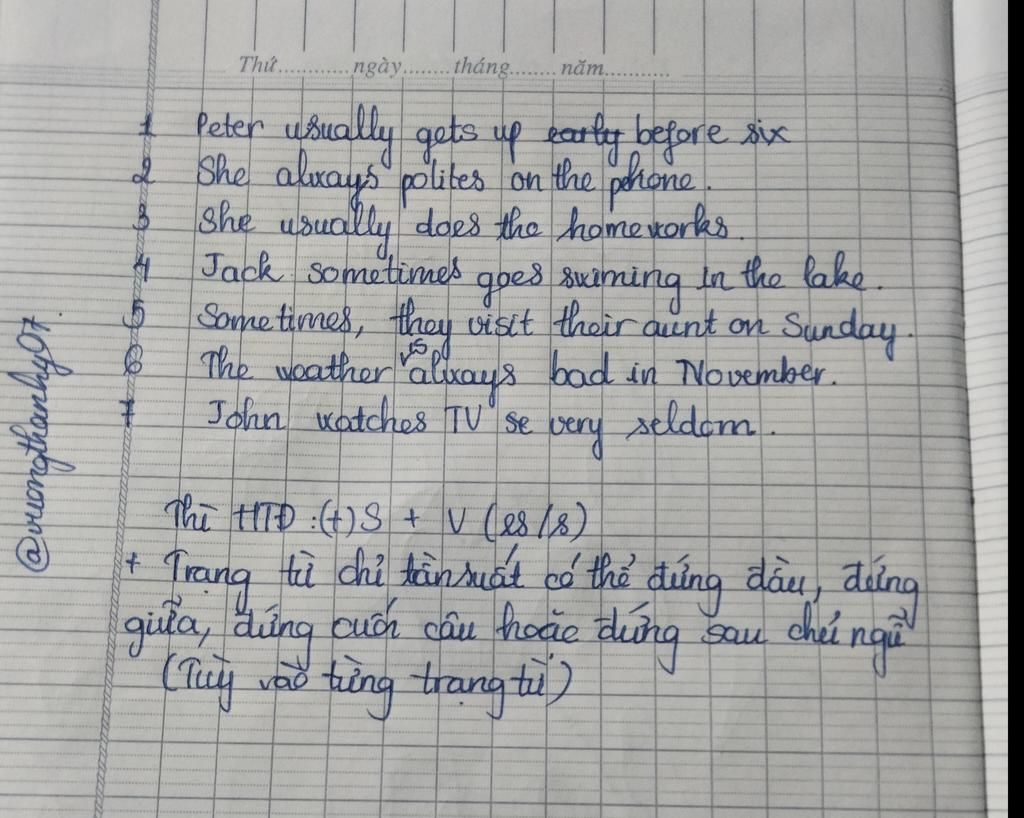 Thứ............ngày........tháng........năm...........
1 Peter usually gets up early before six
2 She always polites on the phone.
3 She usually does the homeworks.
4 Jack sometimes goes swiming in the lake.
5 Sometimes, they visit their aunt on Sunday.
6 The weather is always bad in November.
7 John watches TV se very seldom.
Thì HTĐ :(+) S + V (es/s)
+ Trạng từ chỉ tần suất có thể đứng đầu, đứng
giữa, đứng cuối câu hoặc đứng sau chủ ngữ
(Tùy vào từng trạng từ)
@vuongthanhy07.